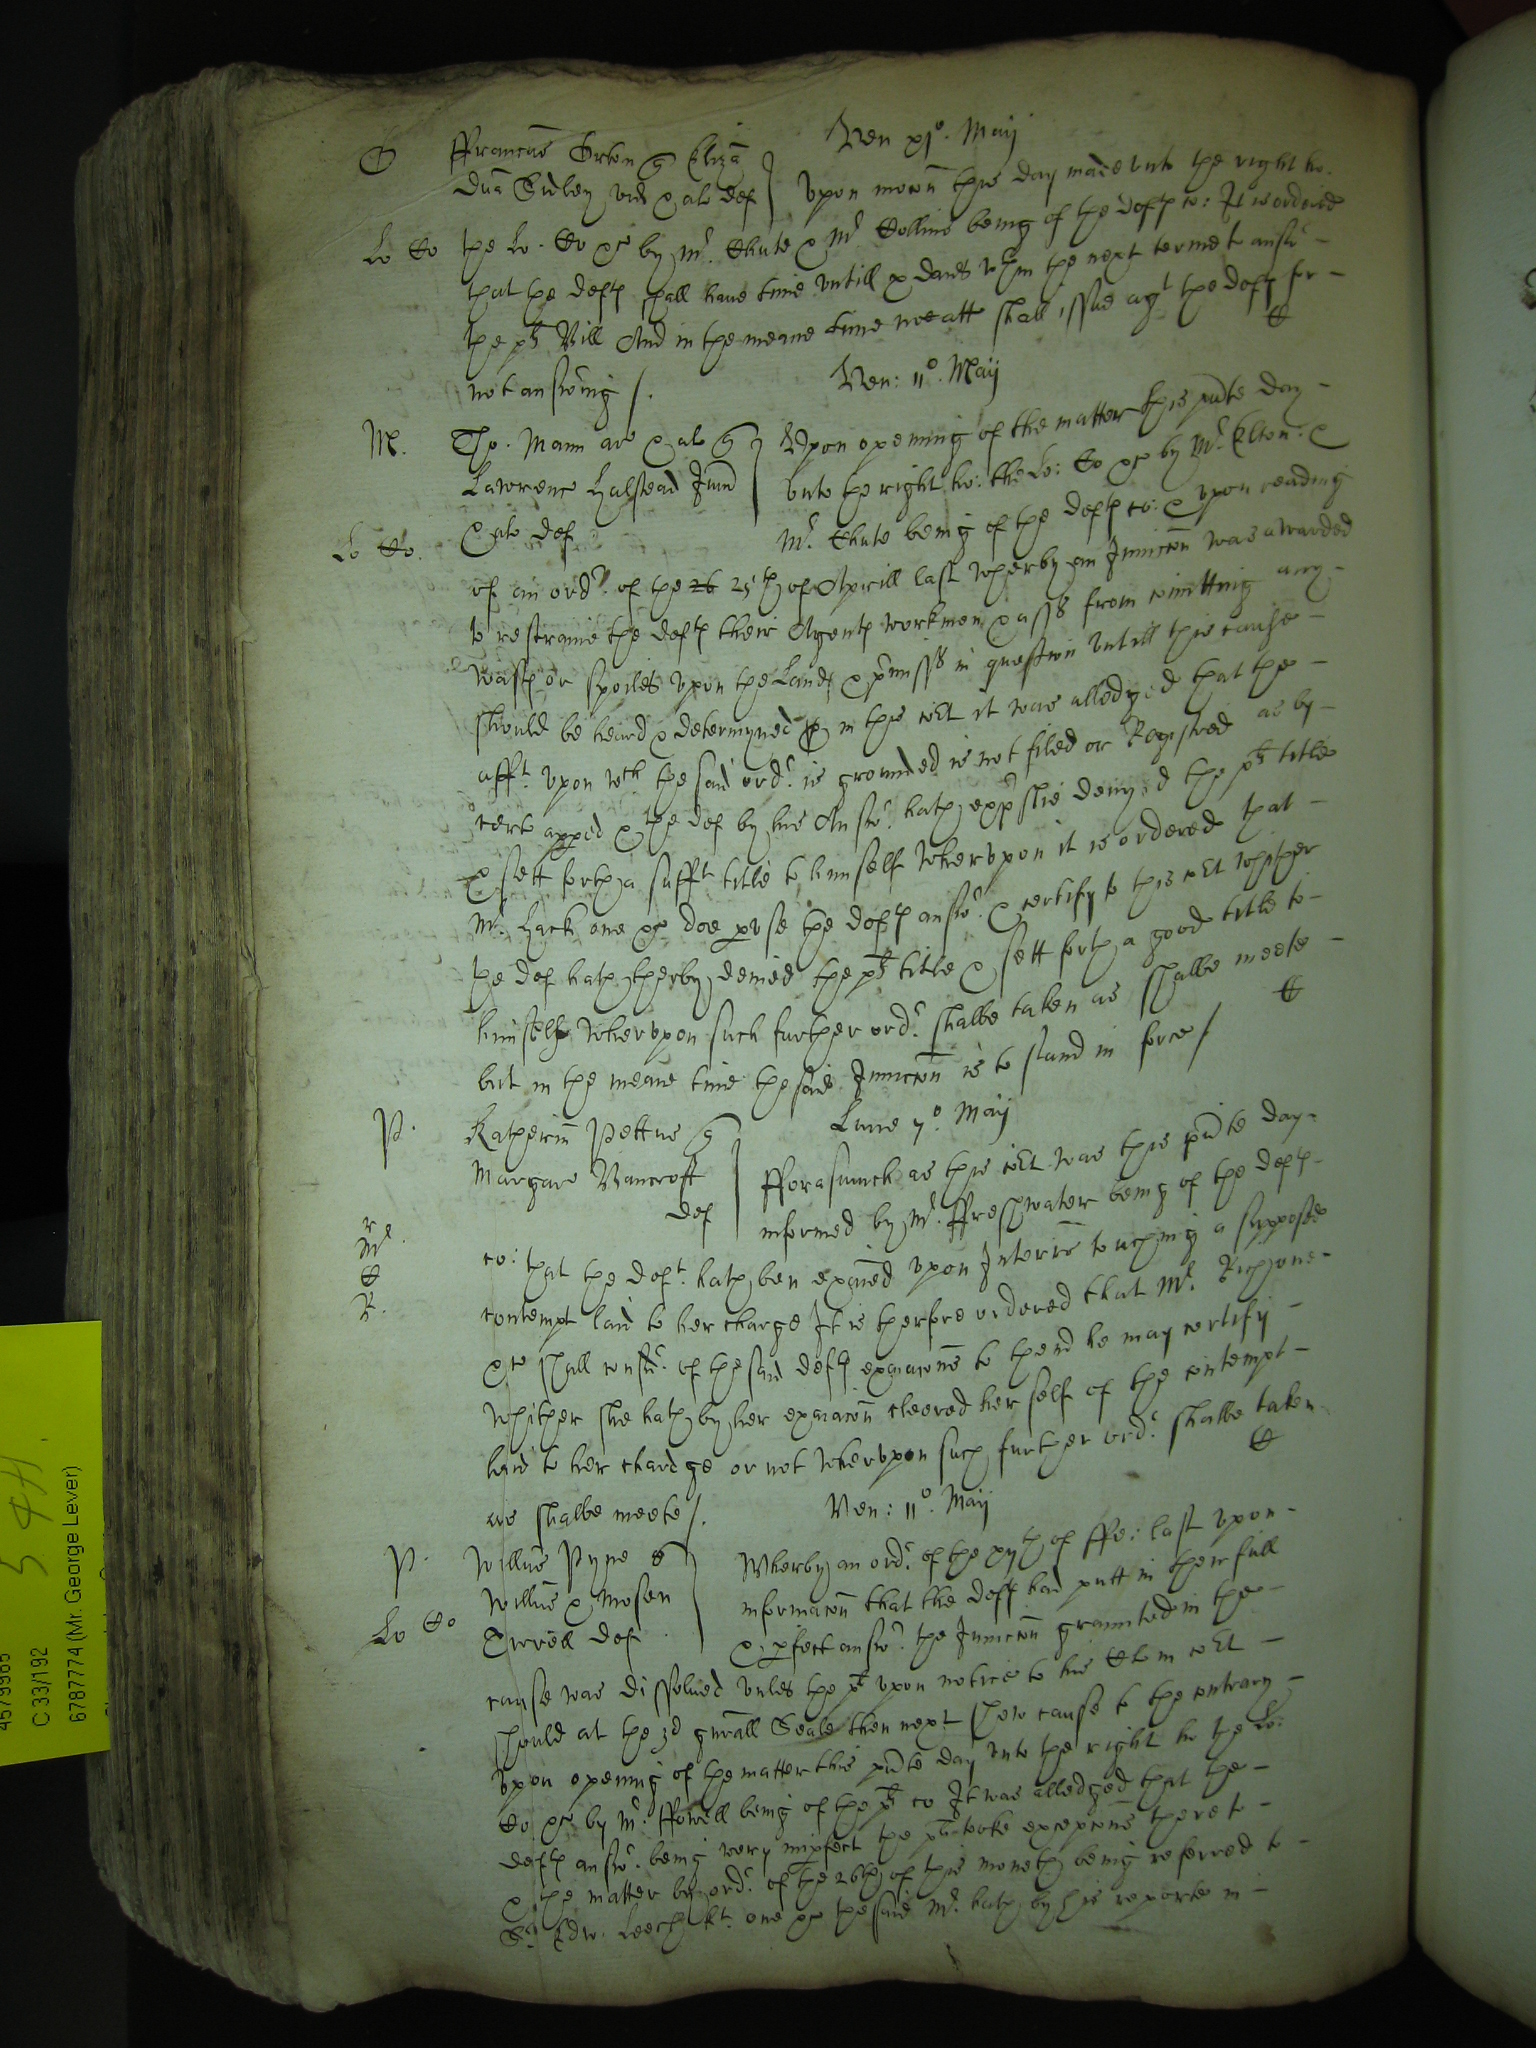 Ven xjo. Maij
O ffranciscus Orton q Eliza
Dna Sidley vid & al def } Vpon mocon this day made vnto the right ho:
Lo Co the Lo. Co &c by Mr. Chute & Mr Collins being of the defts co: It is ordered
that the defts shall have time vntill x daies wthin the next terme to answ
the pts Bill And in the meane time noe att shall issue agt the defts for
not answring /.
Ven: 11o. Maij
M. Tho. Mann ar & al q } Vpon opening of the matter this pnte day
Lawrence Halstead Junr } vnto the right ho: the Lo: Co &c by Mr Elton &
Lo Co. & al def Mr. Chute being of the defts co: & vpon reading
of an ordr. of the 26 25th of Aprill last wherby an Iniuccon was awarded
to restraine the defts their Agents workmen & asss from comitting any
wasts or spoiles vpon the Lands & pmisss in question vntill this cause
should be heard & determyned in this cot it was alledged that the
afft. vpon wch the said ordr. is grounded is not filed or Registred as by
cert apped & the def by his Answr. hath expslie denyed the pts title
& sett forth a sufft title to himself Wherupon it is ordered that
Mr. Hack one &c doe pvse the defts answr. & certify to this cot whither
the def hath therby denied the pts title & sett forth a good title to
himselfe Wherupon such further ordr. shalbe taken as shalbe meete
but in the meane time the said Iniuccon is to stand in force /
Lune 7o. Maij
P. Katherin Pettus q
Margare Bancroft } fforasmuch as this cot was this pnte day
def } informed by Mr. ffreshwater being of the defts
co: that the deft. hath ben exained vpon Interr touching a supposed
contempt laid to her charge It is therfore ordered that Mr. Rich one
&c shall consider of the said defts exaiacons to thend he may certify
whither she hath by her exaiacon cleered her self of the contempt
laid to her chardge or not Wherupon such further ordr. shalbe taken
as shalbe meete /.
Ven: 11o. Maij
P. Willus Pyne q } Wherby an ordr. of the xyth of ffe: last vpon
Willus & Mosen } informacon that the defts had putt in their full
Lo Co def & pfect answr. the Iniuccon graunted in the
cause was dissolued vnles the pt vpon notice to his Clo in cot
should at the 3d gnrall Seale then next shew cause to the contrary
Vpon opening of the matter this pnte day vnto the right ho the Lo:
Co &c by Mr: ffowell being of the pts co It was alledged that the
defts answr. being very impfect the pt tooke excepcons thereto
& the matter by ordr. of the 26th of this moneth being referred to
Sr Edw. Leech kt. one &c the said Mr. hath by his reporte in
4579985
C 33/192
6787774 (Mr. George Lever)